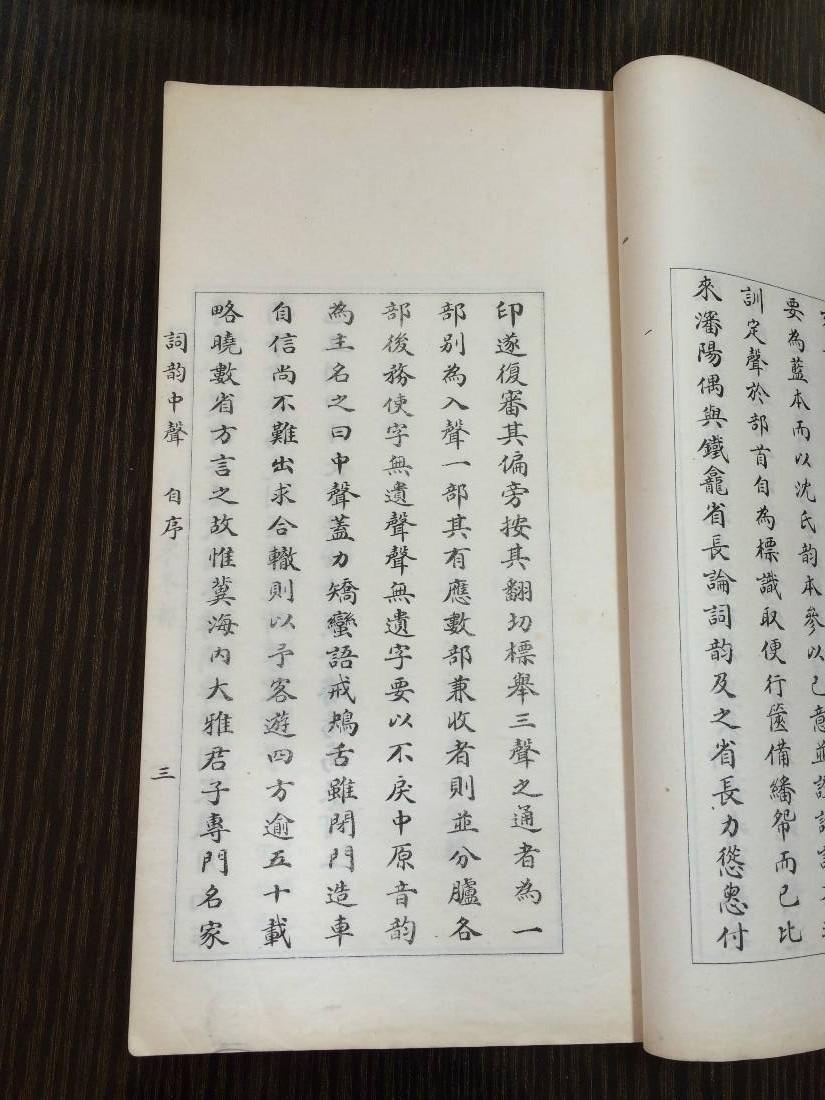 要為藍本而以沈氏韵本參以己意並
訓定聲於部首自為標識取便行篋備繙而已比
來瀋陽偶與鐵龕省長論詞韵及之省長力慫恿付
印遂復審其偏旁按其翻切標舉三聲之通者為一
部別為入聲一部其有應數部兼收者則並分臚各
部後務使字無遺聲聲無遺字要以不戾中原音韵
為主名之曰中聲蓋力矯蠻語戒鴂舌雖閉門造車
自信尚不難出求合轍則以予客遊四方逾五十載
略曉數省方言之故惟冀海內大雅君子專門名家
詞韵中聲 自序
三